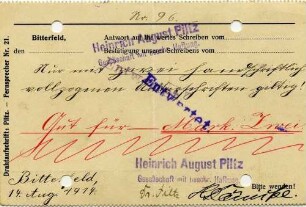 Nr. 96.
Drahtanschrift: Piltz. - Fernsprecher Nr. 21.
Bitterfeld, Antwort auf Ihr wertes Schreiben vom
Bestätigung unseres Schreibens vom
Heinrich August Piltz
Gesellschaft mit beschr. Haftung
Nur mit zwei handschriftlich
vollzogenen Unterschriften gültig!
Entwertet
Gut für Mark Zwei
Heinrich August Piltz
Gesellschaft mit beschr. Haftung
Bitterfeld,
14. Aug. 1914.
Bitte wenden!